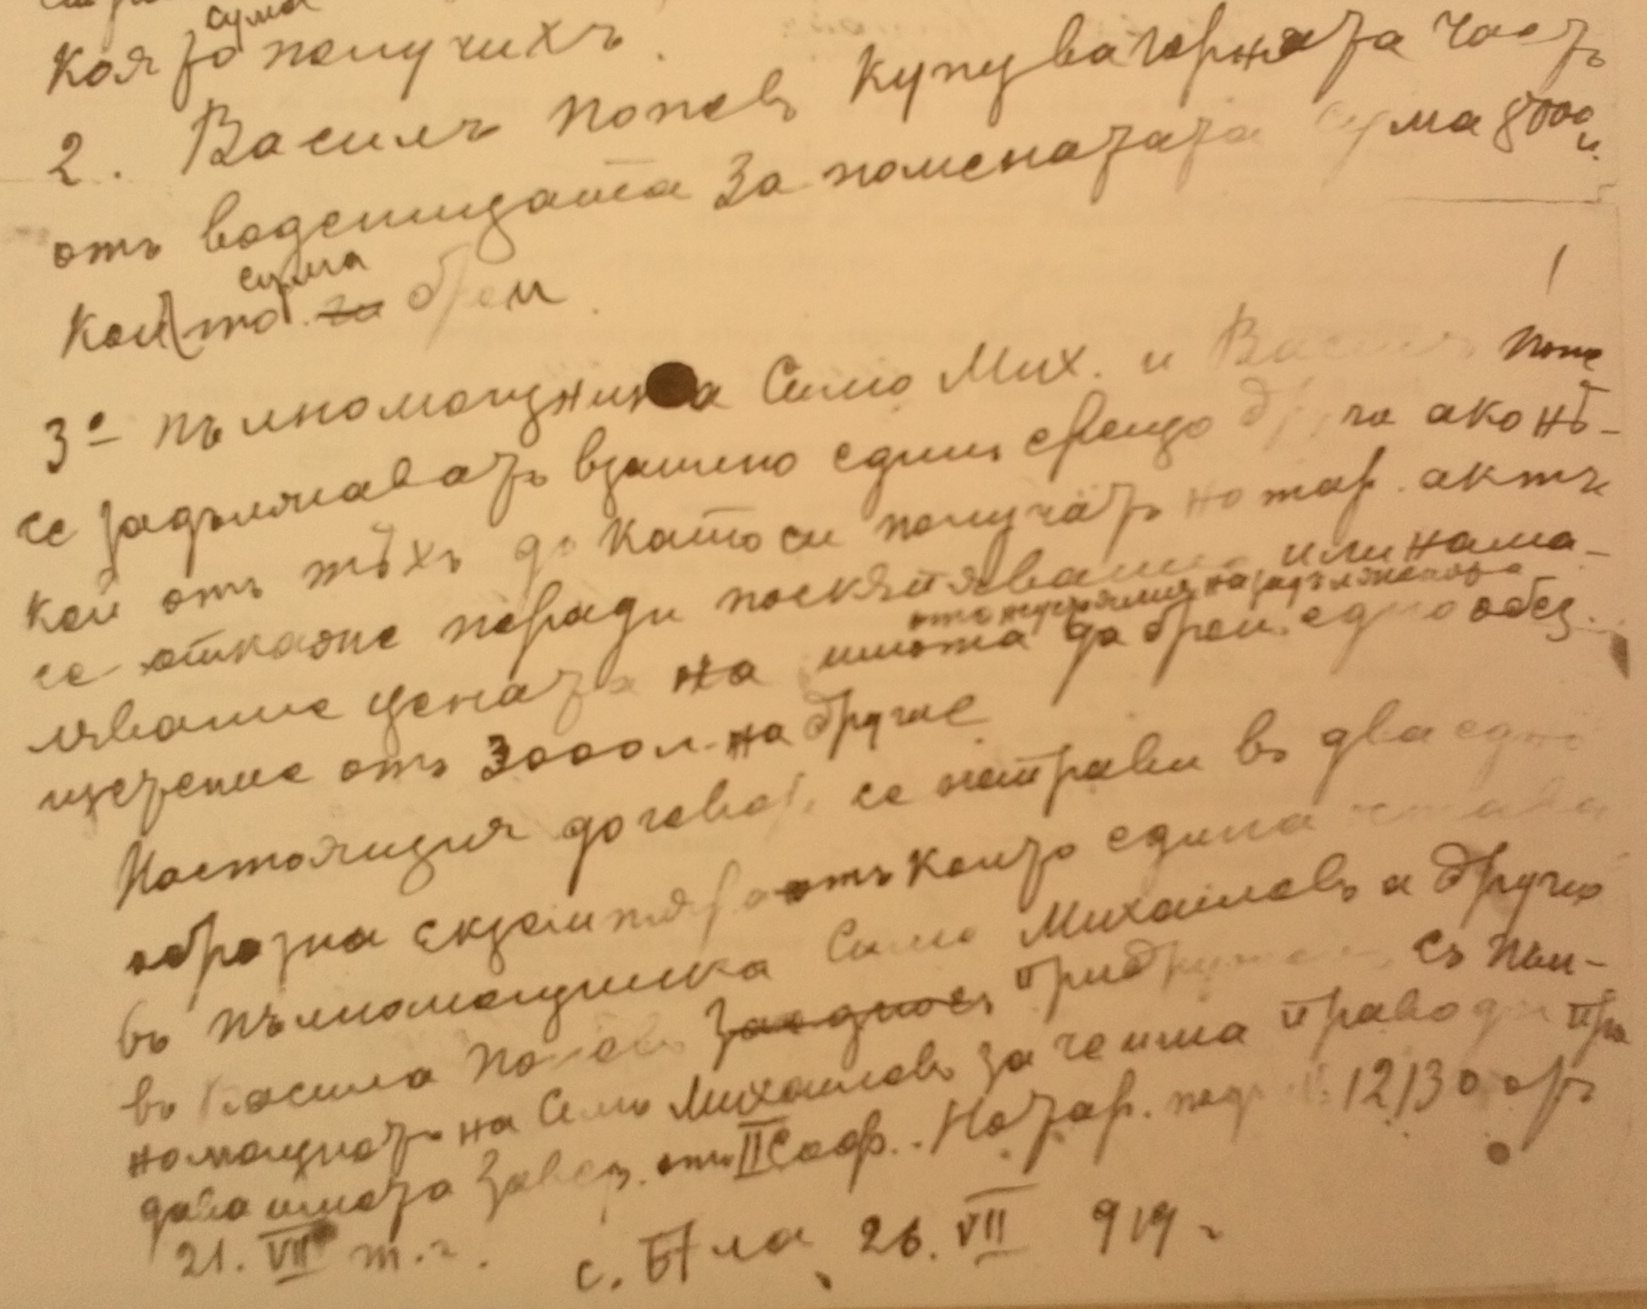 сума
която получихъ.
2. Василъ Поповъ купува горната часть
отъ воденицата за поменатата сума 8000 л.
сума
която брои.
3º пълномощника Симо Мих. и Василъ Попо
се задължаватъ взаимно единъ срещо други ако нѣ-
кой отъ тѣхъ до като си получатъ нотар. актъ
се откаже поради поскѫпявание или нама-
лявание цената на имота да брои едно обез-
отъ неустоялия на задължението
щетение отъ 3000 л. на другие
Настоящия договоръ се направи въ два едно
образни екземпляра отъ които единия остава
въ пълномощника Симо Михаиловъ а другия
въ Васила Поповъ заедносъ придруженъ съ пъл-
номощното на Симо Михаиловъ за чеима право да про
дава имота завер. отъ II Соф. Нотар. подъ № 12130 отъ
21. VII т.г.
с. Бѣла 26. VII 919 г